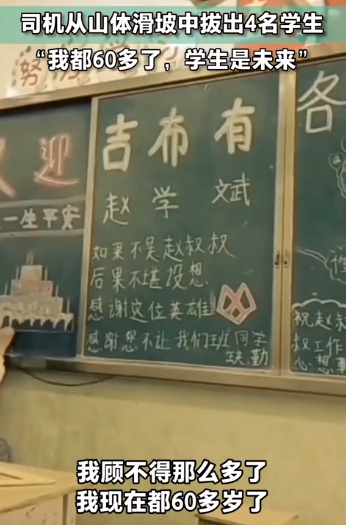 司机从山体滑坡中拔出4名学生
“我都60多了，学生是未来”
努
欢迎
一生平安
吉布有
赵学斌
如果不是赵叔叔
后果不堪设想
感谢这位英雄
感谢您不让我们班同学
缺勤
各
祝赵叔
叔工作
心想事
我顾不得那么多了
我现在都60多岁了